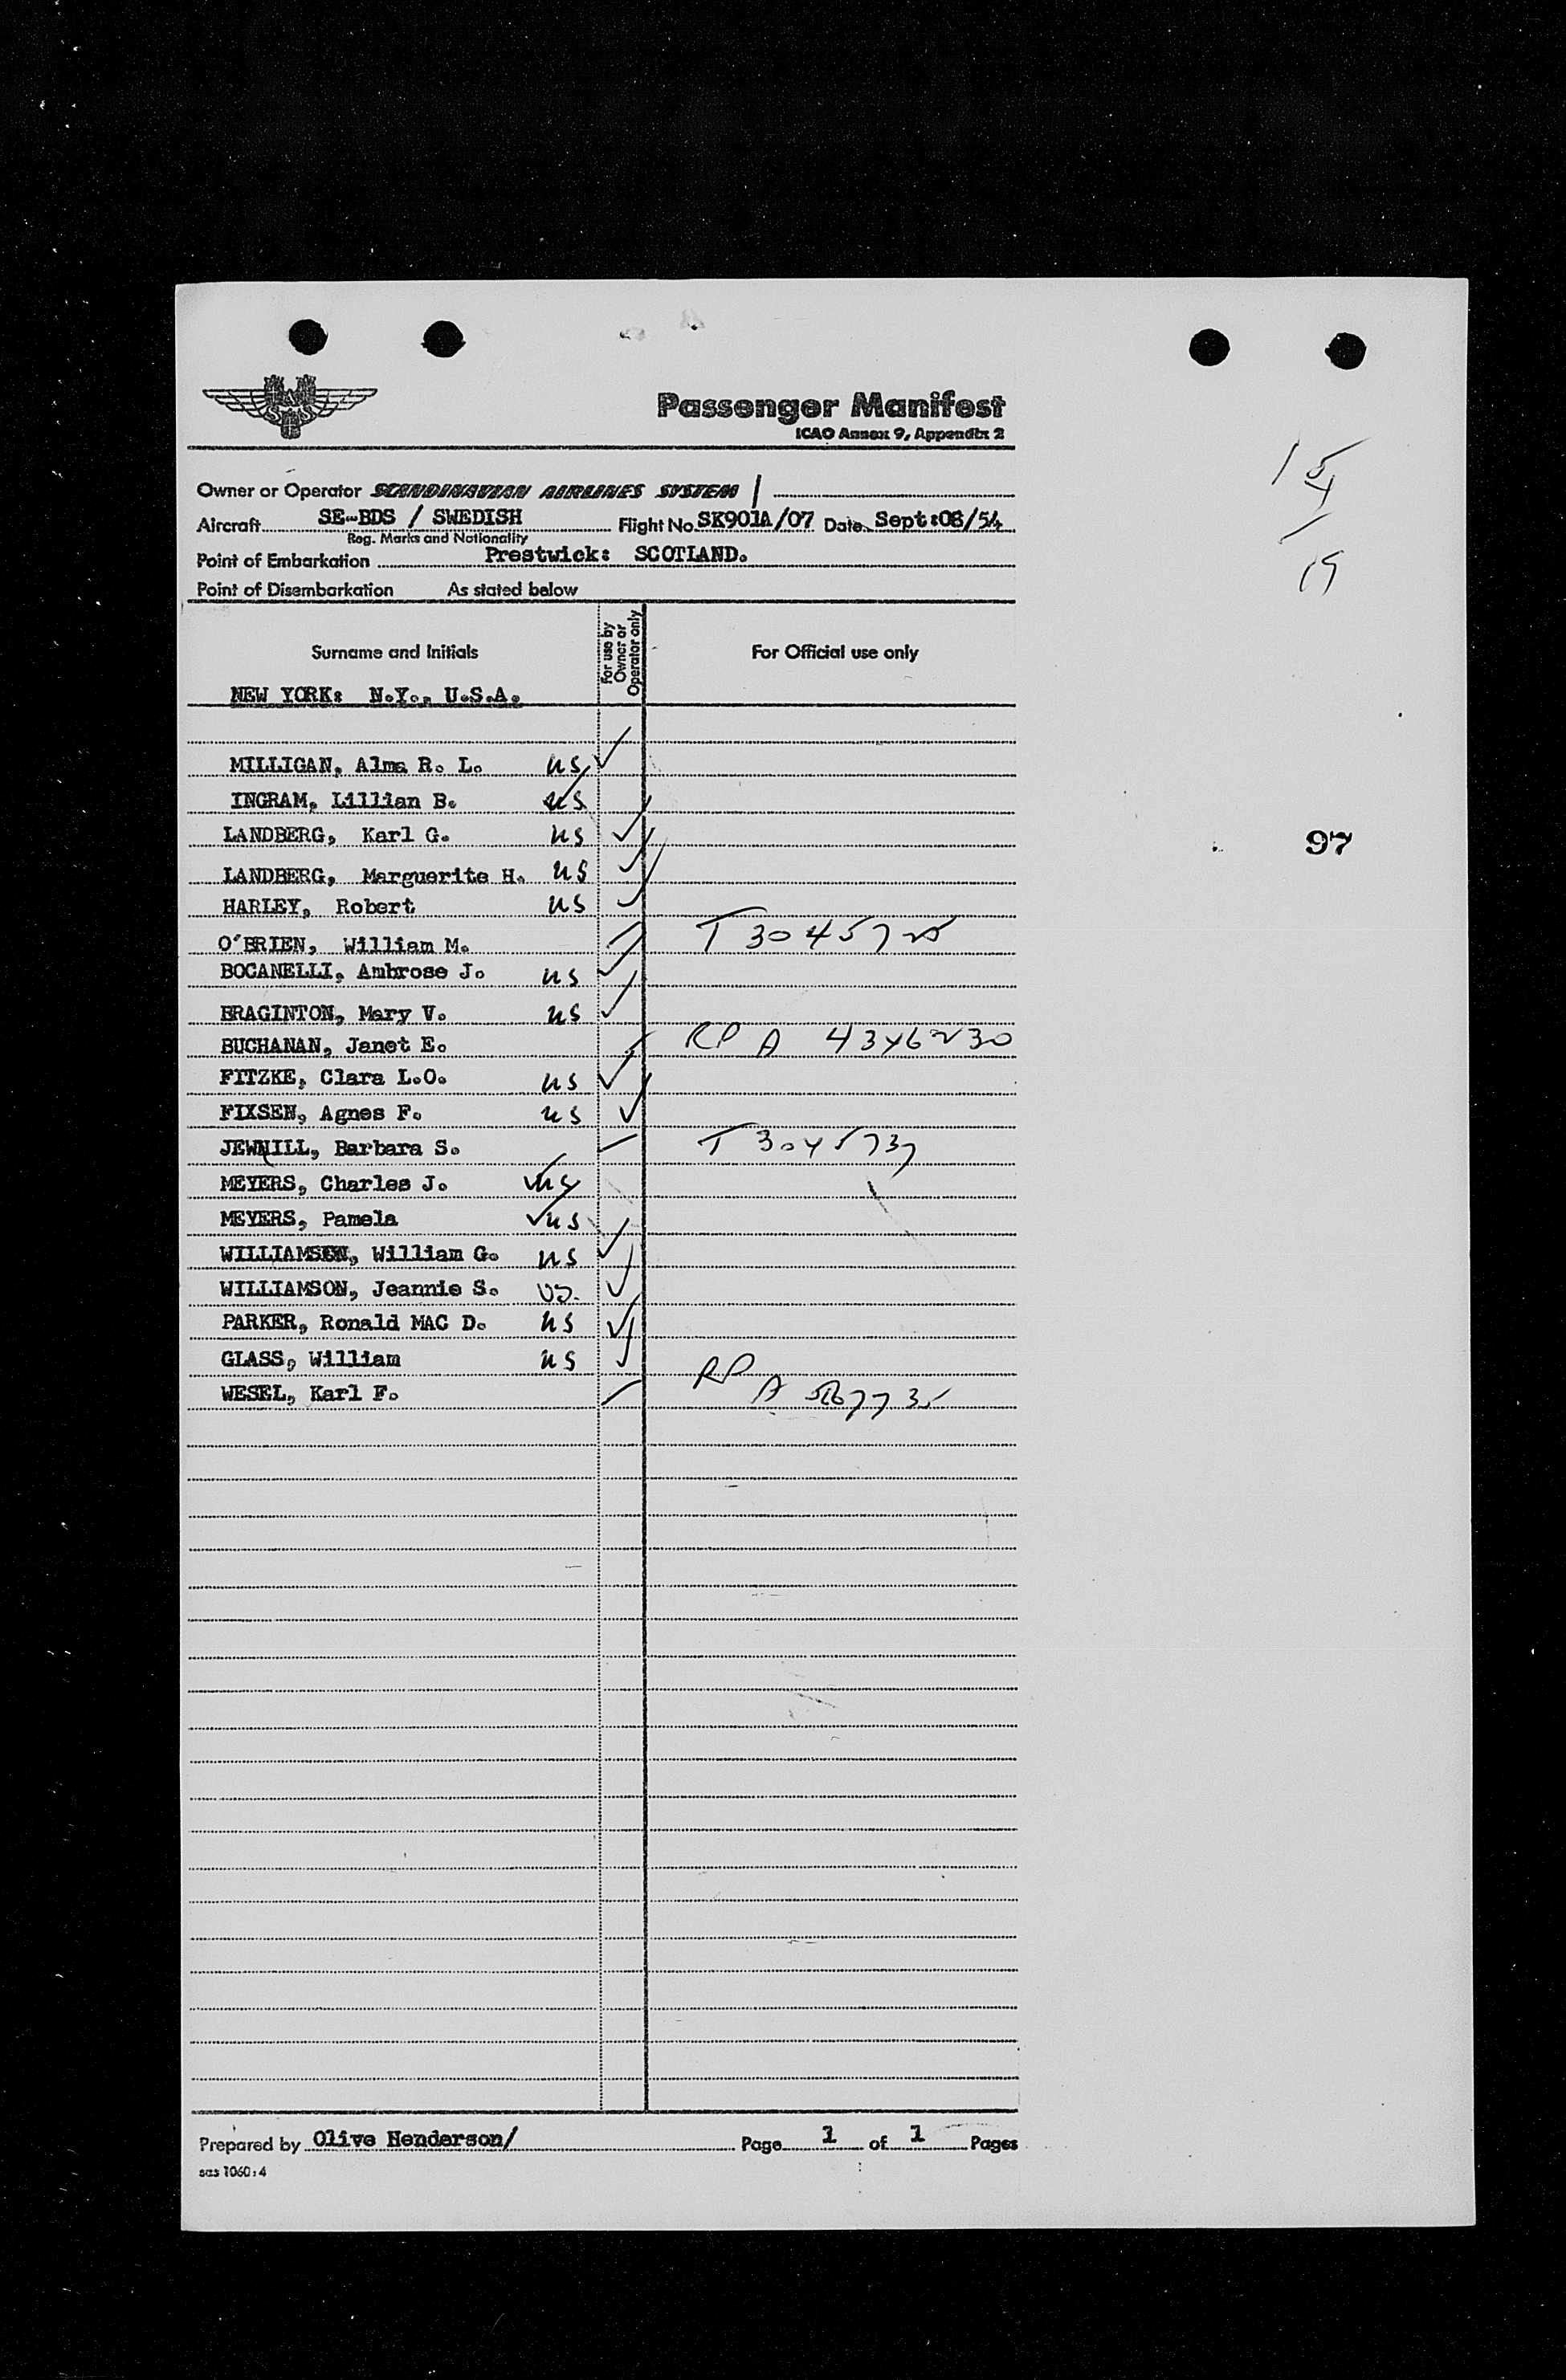 SAS
Passenger Manifest
ICAO Annex 9, Appendix 2
Owner or Operator SCANDINAVIAN AIRLINES SYSTEM /
Aircraft SE-BDS / SWEDISH Flight No. SK901A/07 Date Sept:08/54
Reg. Marks and Nationality
Point of Embarkation Prestwick: SCOTLAND.
Point of Disembarkation As stated below
Surname and Initials For use by Owner or Operator only For Official use only
NEW YORK: N.Y., U.S.A.
MILLIGAN, Alma R. L. US ✓
INGRAM, Lillian B. US
LANDBERG, Karl G. US ✓
LANDBERG, Marguerite H. US ✓
HARLEY, Robert US ✓
O'BRIEN, William M. T 3045725
BOCANELLI, Ambrose J. US ✓
BRAGINTON, Mary V. US ✓
BUCHANAN, Janet E. RP A 4346230
FITZKE, Clara L.O. US ✓
FIXSEN, Agnes F. US ✓
JEWNILL, Barbara S. T 3045737
MEYERS, Charles J. ✓ US
MEYERS, Pamela ✓ US
WILLIAMSON, William G. US ✓
WILLIAMSON, Jeannie S. US. ✓
PARKER, Ronald MAC D. US ✓
GLASS, William US ✓
WESEL, Karl F. RP A
15
4
19
97
Prepared by Olive Henderson/ Page 1 of 1 Pages
sas 1060:4